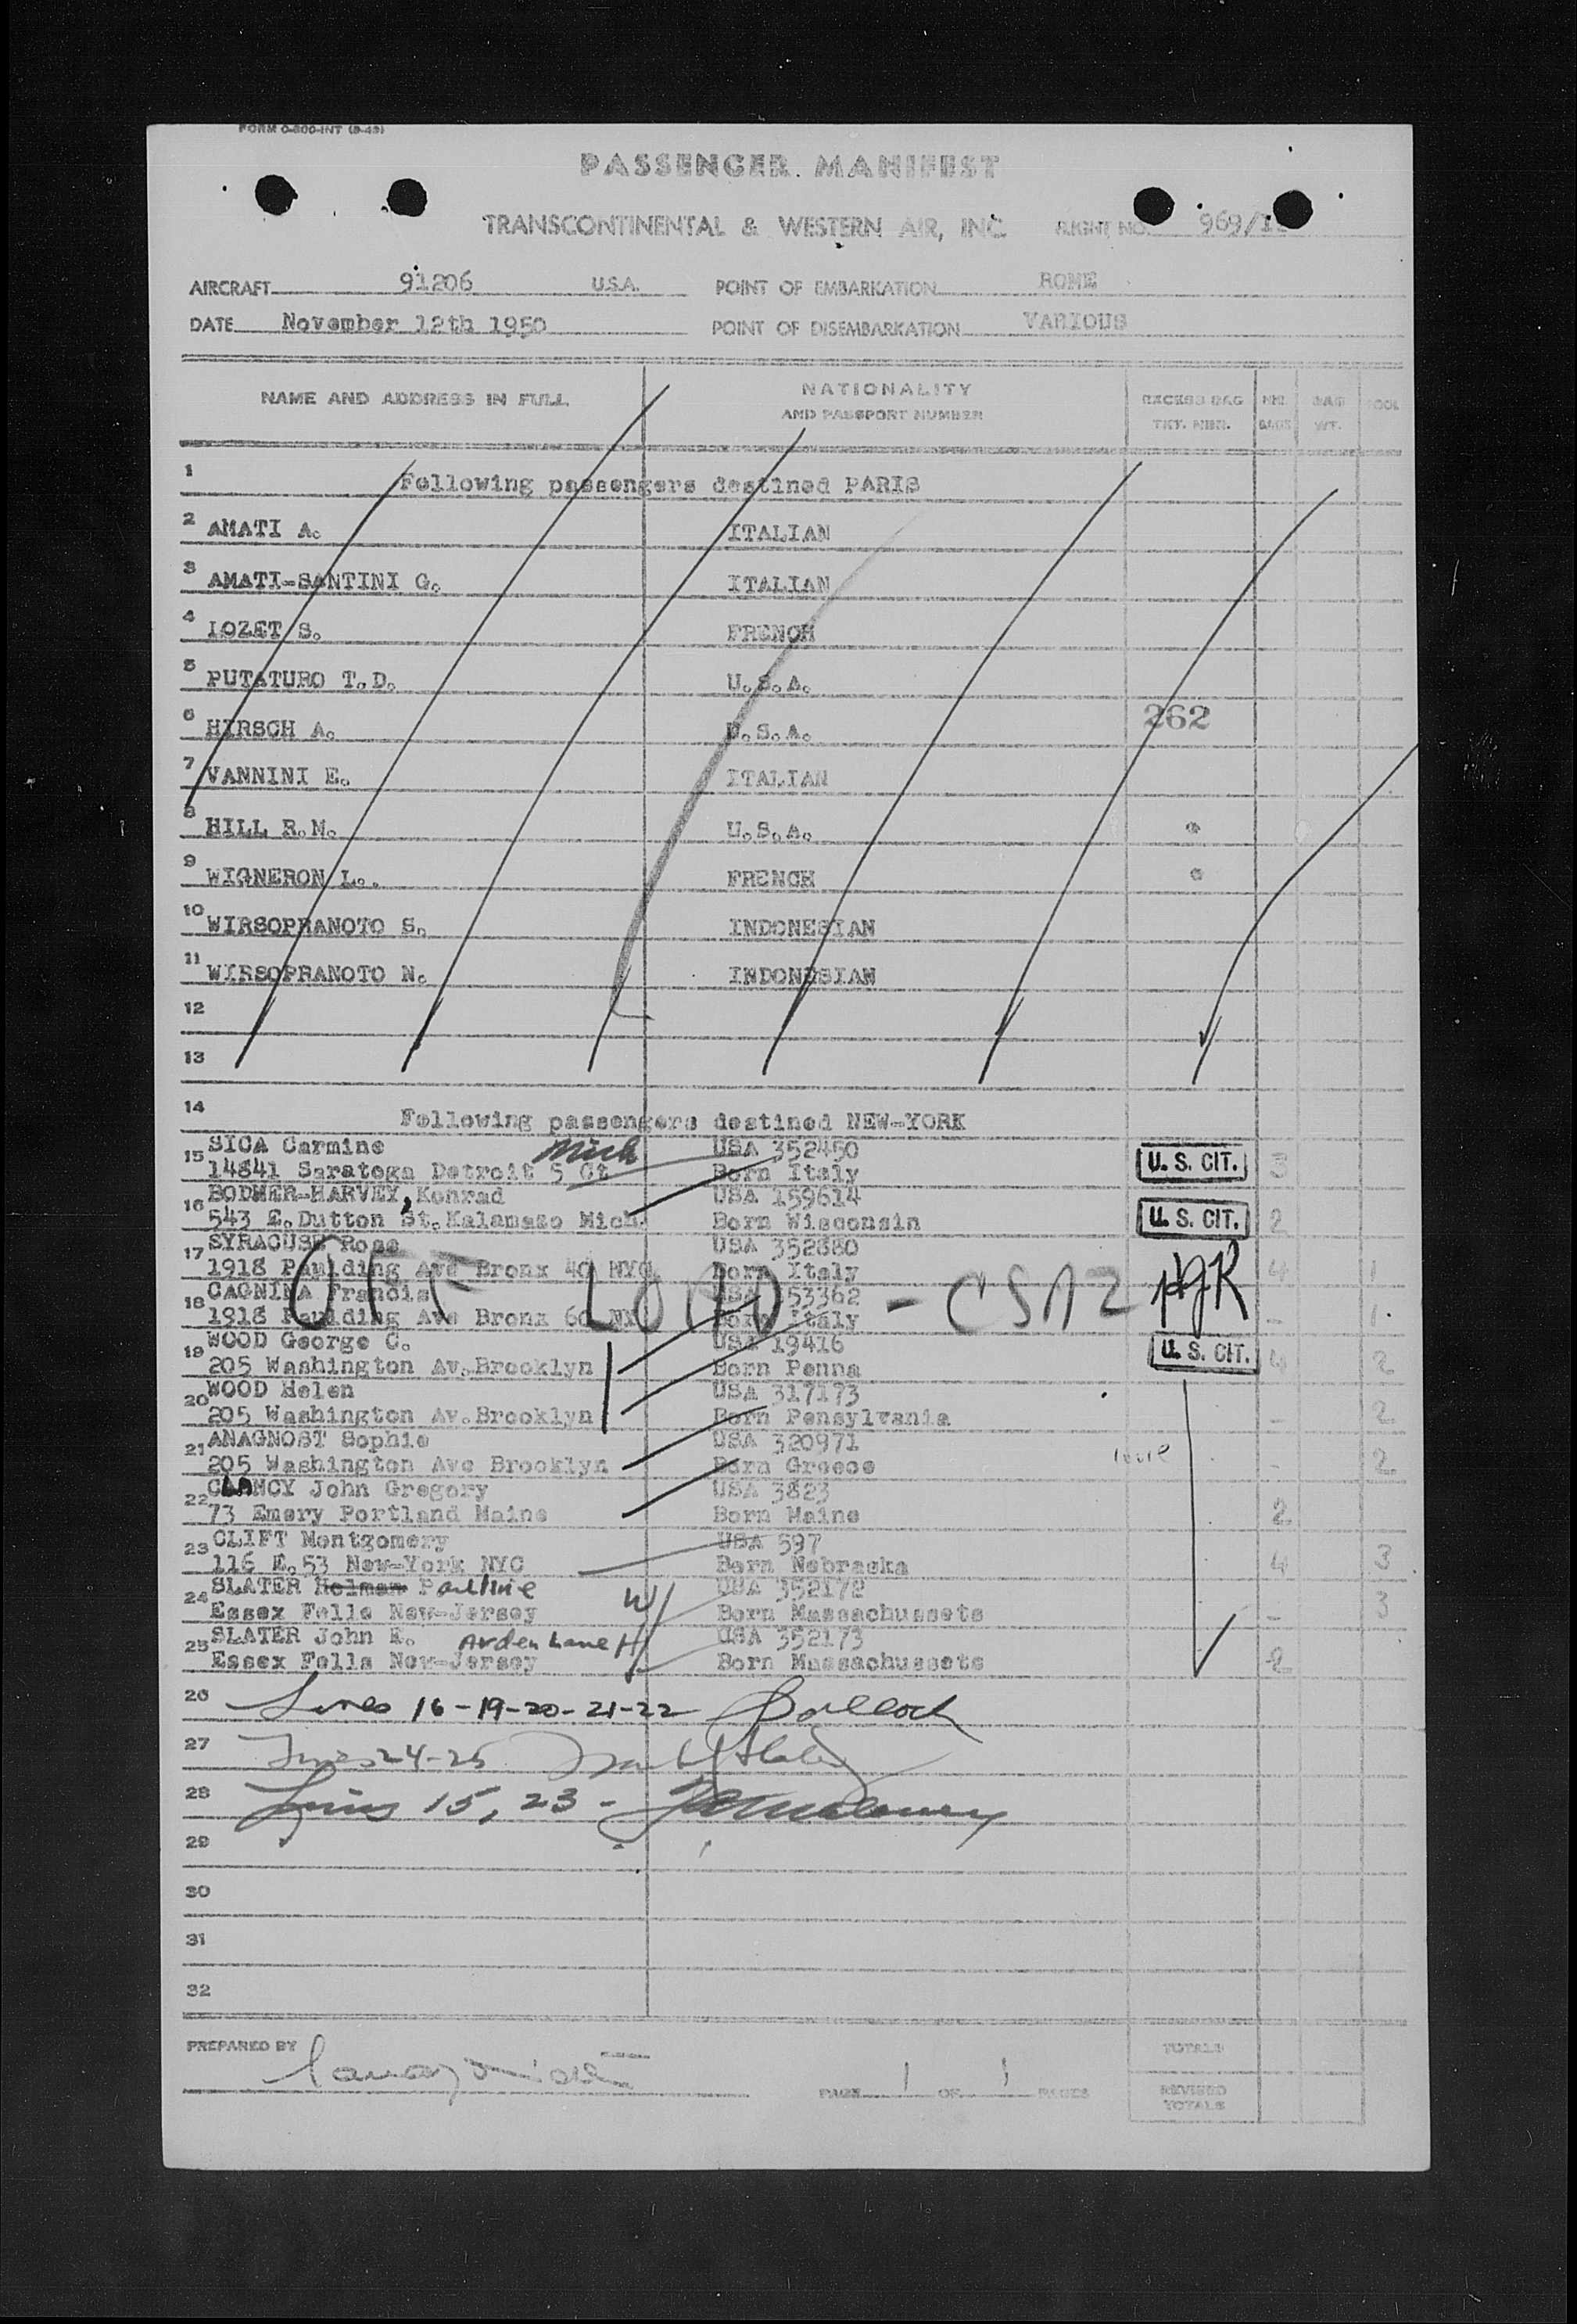 FORM O-800-INT (9-49)
PASSENGER MANIFEST
TRANSCONTINENTAL & WESTERN AIR, INC. FLIGHT NO. 969/1
AIRCRAFT 91206 U.S.A. POINT OF EMBARKATION ROME
DATE November 12th 1950 POINT OF DISEMBARKATION VARIOUS
NAME AND ADDRESS IN FULL NATIONALITY AND PASSPORT NUMBER EXCESS BAG TKT. NBR. NBR. BAGS BAG WT. POOL
1 Following passengers destined PARIS
2 AMATI A. ITALIAN
3 AMATI-SANTINI G. ITALIAN
4 IOZET S. FRENCH
5 PUTATURO T.D. U.S.A.
6 HIRSCH A. U.S.A. 262
7 VANNINI E. ITALIAN
8 HILL R.M. U.S.A.
9 WIGNERON L.. FRENCH
10 WIRSOPRANOTO S. INDONESIAN
11 WIRSOPRANOTO N. INDONESIAN
12
13
14 Following passengers destined NEW-YORK
15 SICA Carmine Mich USA 352450
14841 Saratoga Detroit 5 Ct Born Italy U. S. CIT. 3
16 BODMER-HARVEY, Konrad USA 159614
543 E.Dutton St.Kalamazo Mich. Born Wisconsin U. S. CIT. 2
17 SYRACUSE Rose USA 352880
1918 Paulding Ave Bronx 40 NYC Born Italy 4 1
OFF LOAD - CSAZ
18 CAGNINA Francis USA 53362
1918 Paulding Ave Bronx 60 NY Born Italy - 1.
19 WOOD George C. USA 19416
205 Washington Av.Brooklyn Born Penna U. S. CIT. 4 2
20 WOOD Helen USA 317173
205 Washington Av.Brooklyn Born Pensylvania - 2
21 ANAGNOST Sophie USA 320971
205 Washington Ave Brooklyn Born Greece - 2
22 CLANCY John Gregory USA 3823
73 Emery Portland Maine Born Maine 2
23 CLIFT Montgomery USA 597
116 E.53 New-York NYC Born Nebraska 4 3
24 SLATER Holman Pauline W USA 352172
Essex Fells New-Jersey Born Massachussets - 3
25 SLATER John E. Arden Lane H USA 352173
Essex Fells New-Jersey Born Massachussets 2
26 Lines 16-19-20-21-22
27 Lines 24-25
28 Lines 15, 23 -
29
30
31
32
PREPARED BY
PAGE 1 OF 1 PAGES
TOTALS
REVISED TOTALS